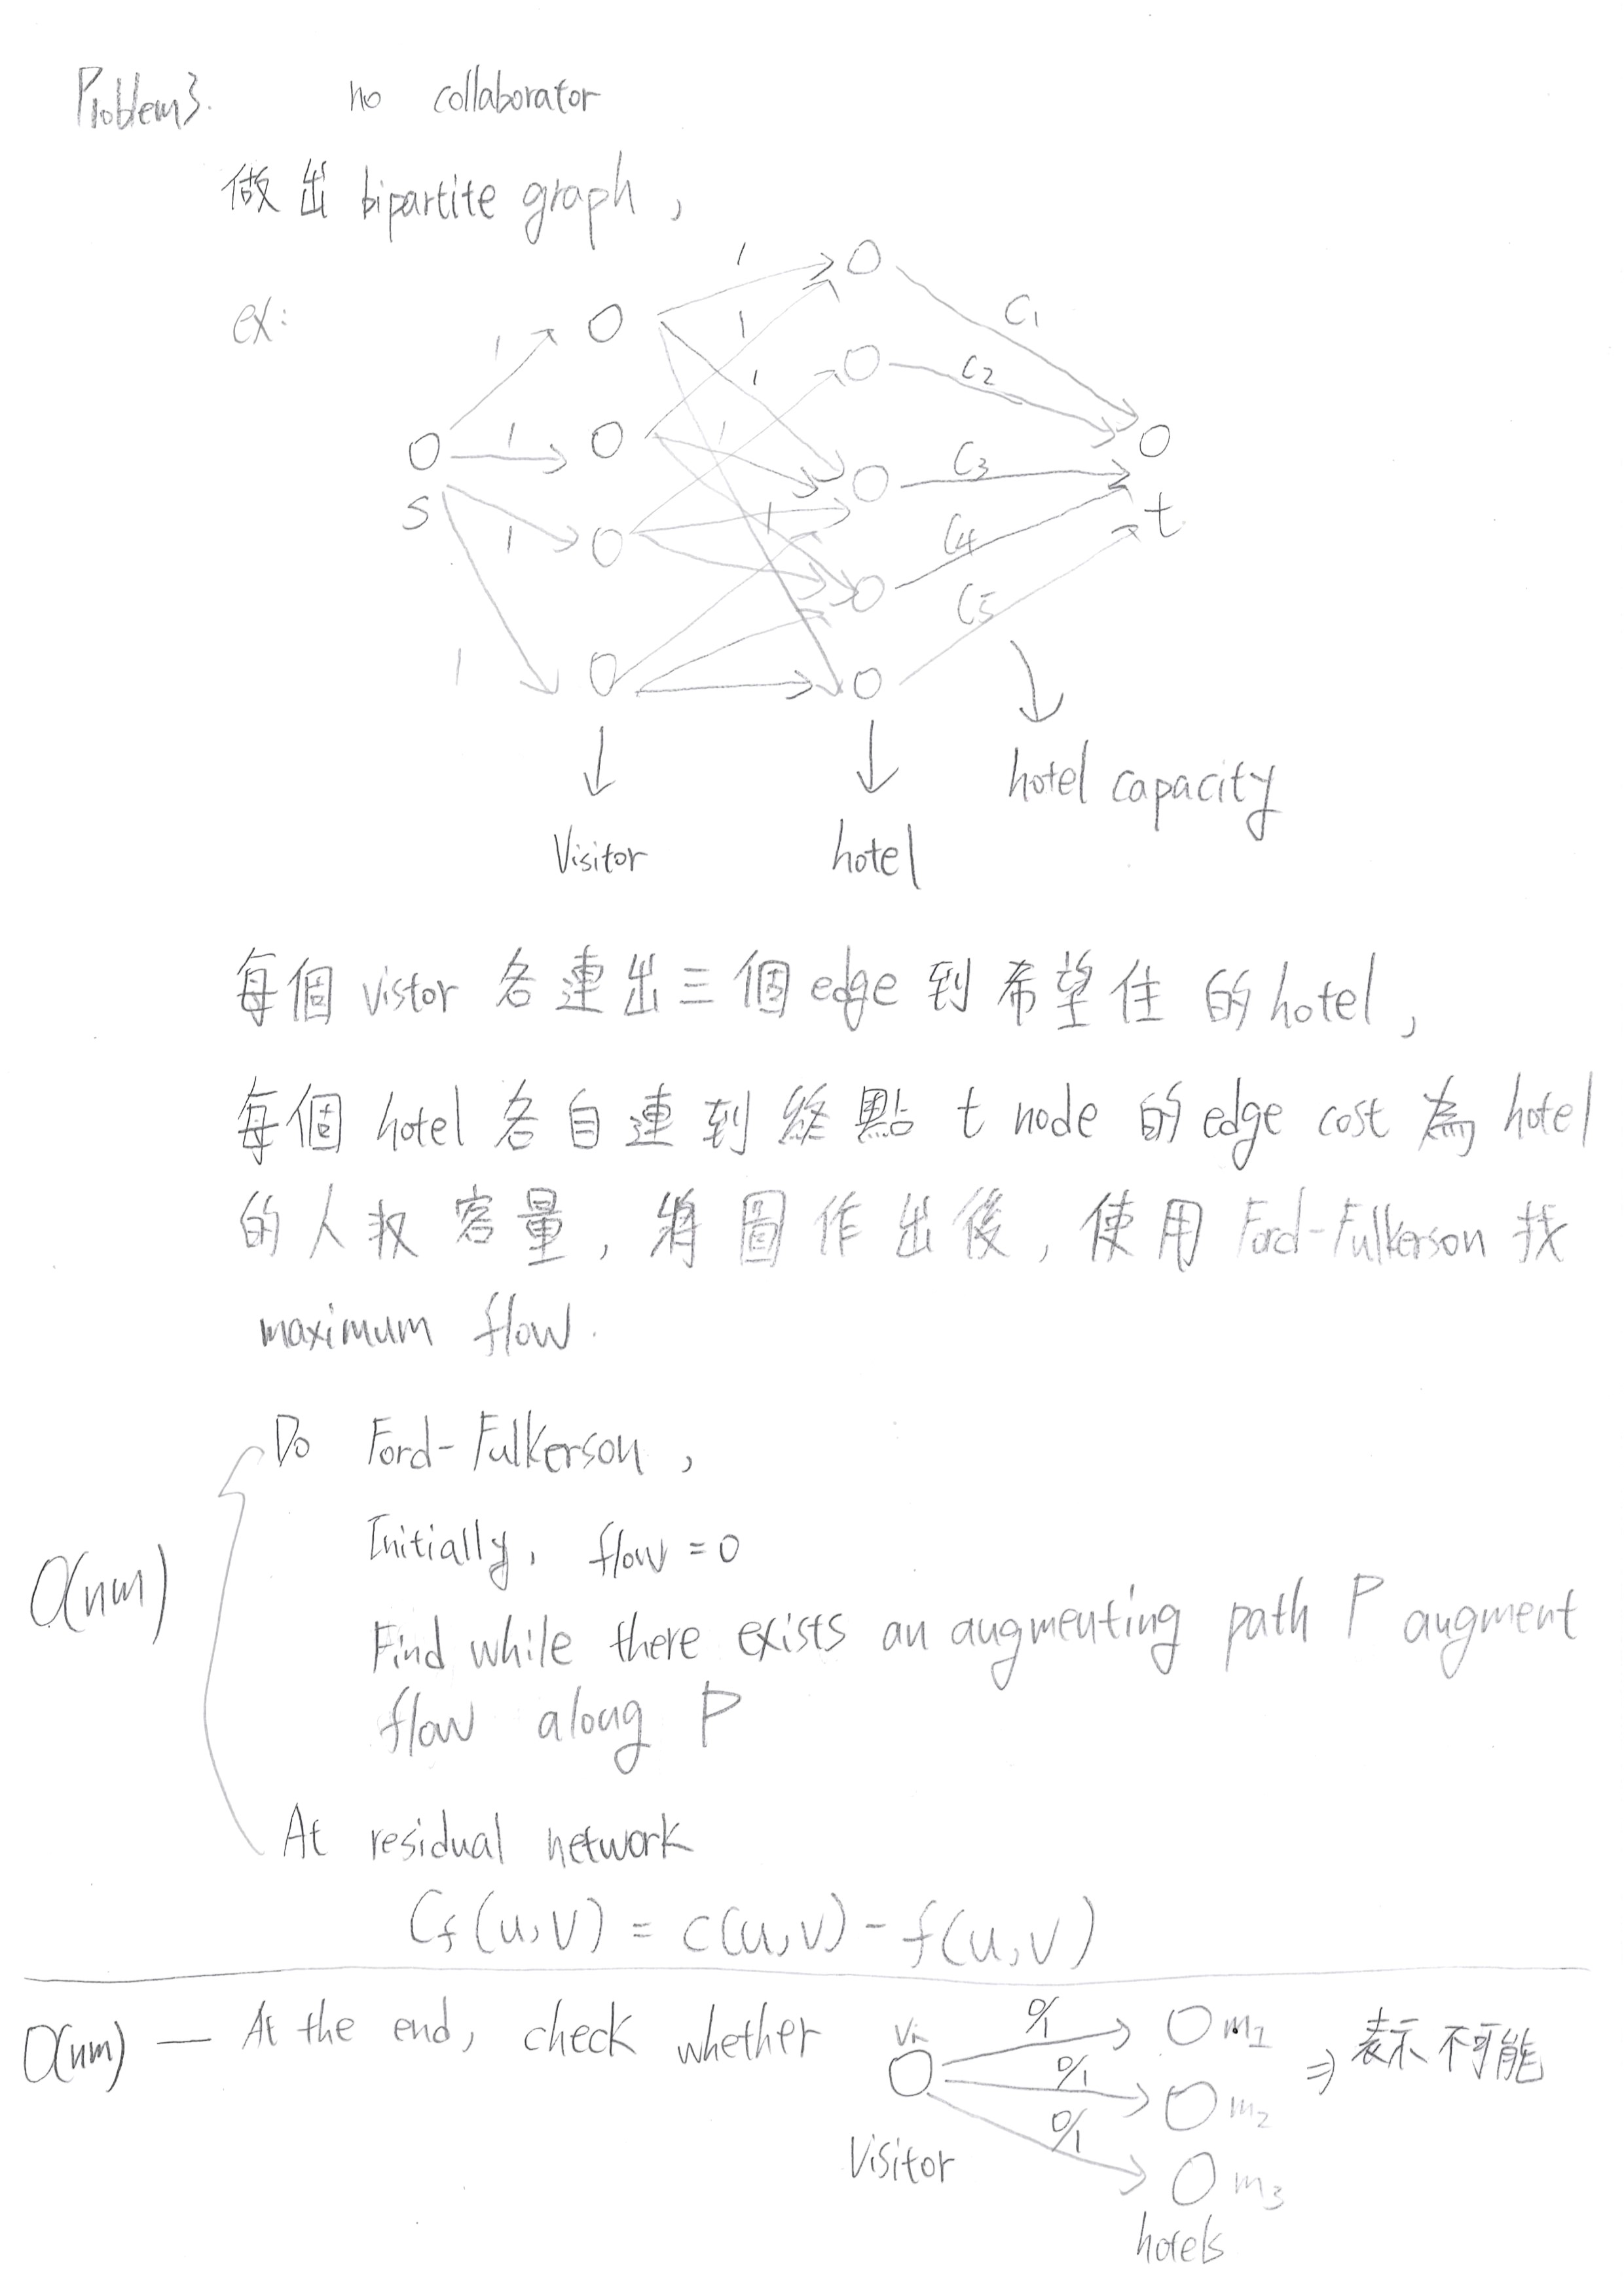 Problem3. no collaborator
做出 bipartite graph,
ex:
1
1
1
1
1
1
1
1
1
C1
C2
C3
C4
C5
S
t
hotel capacity
Visitor
hotel
每個 vistor 各連出三個 edge 到希望住的 hotel,
每個 hotel 各自連到終點 t node 的 edge cost 為 hotel
的人数容量, 將圖作出後, 使用 Ford-Fulkerson 找
maximum flow.
Do Ford-Fulkerson,
Initially, flow = 0
O(nm)
Find while there exists an augmenting path P augment
flow along P
At residual network
Cf(u,v) = c(u,v) - f(u,v)
O(nm) — At the end, check whether
0/1
0/1
0/1
m1
m2
m3
⇒ 表示不可能
Visitor
hotels